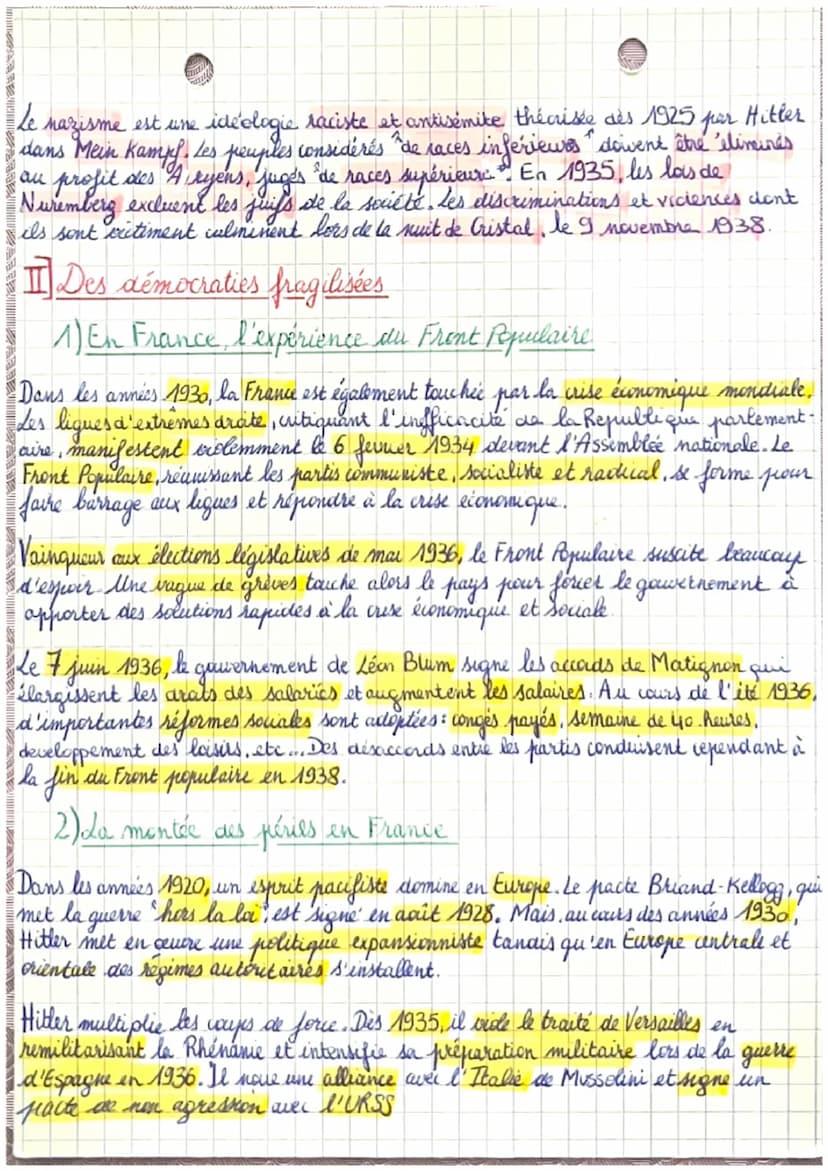 Le nazisme est une idéologie raciste et antisémite théorisée dès 1925 par Hitler
dans Mein Kampf. Les peuples considérés "de races inférieures" doivent être éliminés
au profit des Aryens, jugés "de races supérieurs". En 1935, les lois de
Nuremberg excluent les juifs de la société. Les discriminations et violences dont
ils sont victiment culminent lors de la nuit de Cristal, le 9 novembre 1938.
II] Des démocraties fragilisées
1) En France, l'expérience du Front Populaire
Dans les années 1930, la France est également touchée par la crise économique mondiale.
Les ligues d'extrêmes droite, critiquant l'inefficacité de la République parlement-
aire, manifestent violemment le 6 fevrier 1934 devant l'Assemblée nationale. Le
Front Populaire, réunissant les partis communiste, socialiste et radical, se forme pour
faire barrage aux ligues et répondre à la crise économique.
Vainqueur aux élections législatives de mai 1936, le Front Populaire suscite beaucoup
d'espoir. Une vague de grèves touche alors le pays pour forcer le gouvernement à
apporter des solutions rapides à la crise économique et sociale.
Le 7 juin 1936, le gouvernement de Léon Blum signe les accords de Matignon qui
élargissent les droits des salariés et augmentent les salaires. Au cours de l'été 1936,
d'importantes réformes sociales sont adoptées : congés payés, semaine de 40 heures,
developpement des loisirs, etc... Des désaccords entre les partis conduisent cependant à
la fin du Front populaire en 1938.
2) La montée des périls en France
Dans les années 1920, un esprit pacifiste domine en Europe. Le pacte Briand-Kellogg, qui
met la guerre "hors la loi", est signé en août 1928. Mais, au cours des années 1930,
Hitler met en œuvre une politique expansionniste tandis qu'en Europe centrale et
orientale des régimes autoritaires s'installent.
Hitler multiplie les coups de force. Dès 1935, il viole le traité de Versailles en
remilitarisant la Rhénanie et intensifie sa préparation militaire lors de la guerre
d'Espagne en 1936. Il noue une alliance avec l'Italie de Mussolini et signe un
pacte de non agression avec l'URSS